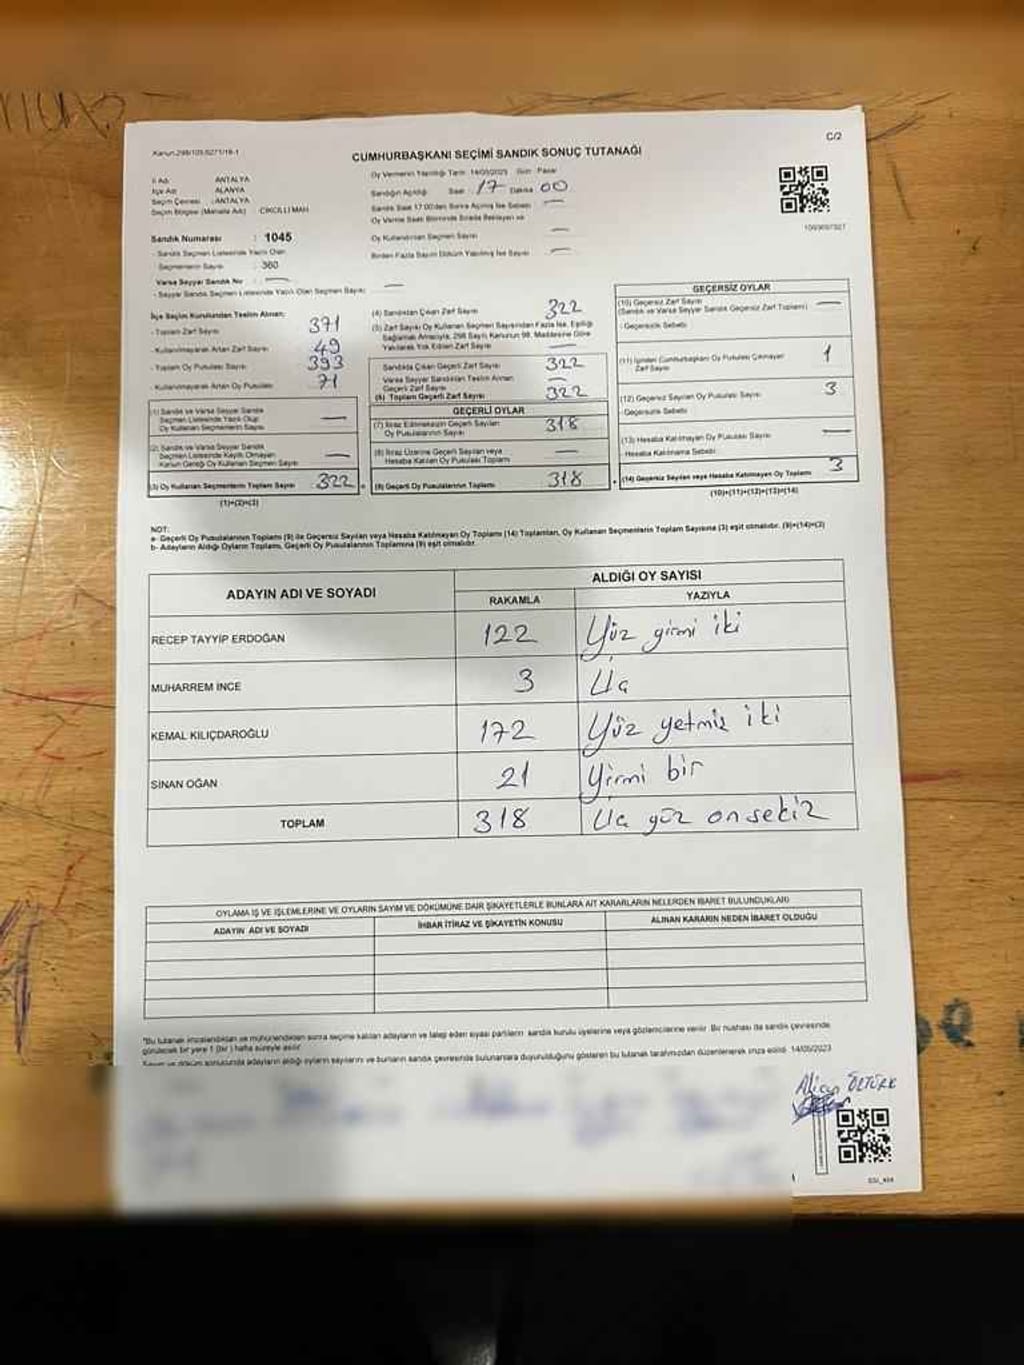 Kanun:298/105,6271/18-1
C/2
CUMHURBAŞKANI SEÇİMİ SANDIK SONUÇ TUTANAĞI
İl Adı ANTALYA
İlçe Adı ALANYA
Seçim Çevresi : ANTALYA
Seçim Bölgesi (Mahalle Adı) CİKCİLLİ MAH
Sandık Numarası : 1045
- Sandık Seçmen Listesinde Yazılı Olan
Seçmenlerin Sayısı : 360
Varsa Seyyar Sandık No : —
- Seyyar Sandık Seçmen Listesinde Yazılı Olan Seçmen Sayısı —
Oy Vermenin Yapıldığı Tarih 14/05/2023 Gün Pazar
Sandığın Açıldığı Saat : 17 Dakika 00
Sandık Saat 17:00'den Sonra Açılmış İse Sebebi —
Oy Verme Saati Bitiminde Sırada Bekleyen ve
Oy Kullandırılan Seçmen Sayısı —
Birden Fazla Sayım Döküm Yapılmış İse Sayısı —
İlçe Seçim Kurulundan Teslim Alınan;
- Toplam Zarf Sayısı 371
- Kullanılmayarak Artan Zarf Sayısı 49
- Toplam Oy Pusulası Sayısı 393
- Kullanılmayarak Artan Oy Pusulası 71
(1) Sandık ve Varsa Seyyar Sandık
Seçmen Listesinde Yazılı Olup
Oy Kullanan Seçmenlerin Sayısı —
(2) Sandık ve Varsa Seyyar Sandık
Seçmen Listesinde Kayıtlı Olmayan
Kanun Gereği Oy Kullanan Seçmen Sayısı —
(3) Oy Kullanan Seçmenlerin Toplam Sayısı 322
(1)+(2)=(3)
(4) Sandıktan Çıkan Zarf Sayısı 322
(5) Zarf Sayısı Oy Kullanan Seçmen Sayısından Fazla İse, Eşitliği
Sağlamak Amacıyla, 298 Sayılı Kanunun 98. Maddesine Göre
Yakılarak Yok Edilen Zarf Sayısı —
Sandıkta Çıkan Geçerli Zarf Sayısı 322
Varsa Seyyar Sandıktan Teslim Alınan
Geçerli Zarf Sayısı —
(6) Toplam Geçerli Zarf Sayısı 322
GEÇERLİ OYLAR
(7) İtiraz Edilmeksizin Geçerli Sayılan
Oy Pusulalarının Sayısı 318
(8) İtiraz Üzerine Geçerli Sayılan veya
Hesaba Katılan Oy Pusulası Toplamı —
(9) Geçerli Oy Pusulalarının Toplamı 318
GEÇERSİZ OYLAR
(10) Geçersiz Zarf Sayısı —
(Sandık ve Varsa Seyyar Sandık Geçersiz Zarf Toplamı)
- Geçersizlik Sebebi
(11) İçinden Cumhurbaşkanı Oy Pusulası Çıkmayan
Zarf Sayısı 1
(12) Geçersiz Sayılan Oy Pusulası Sayısı 3
- Geçersizlik Sebebi
(13) Hesaba Katılmayan Oy Pusulası Sayısı —
- Hesaba Katılmama Sebebi
(14) Geçersiz Sayılan veya Hesaba Katılmayan Oy Toplamı 3
(10)+(11)+(12)+(13)=(14)
NOT:
a- Geçerli Oy Pusulalarının Toplamı (9) ile Geçersiz Sayılan veya Hesaba Katılmayan Oy Toplamı (14) Toplamları, Oy Kullanan Seçmenlerin Toplam Sayısına (3) eşit olmalıdır. (9)+(14)=(3)
b- Adayların Aldığı Oyların Toplamı, Geçerli Oy Pusulalarının Toplamına (9) eşit olmalıdır.
ADAYIN ADI VE SOYADI ALDIĞI OY SAYISI
RAKAMLA YAZIYLA
RECEP TAYYİP ERDOĞAN 122 Yüz yirmi iki
MUHARREM İNCE 3 Üç
KEMAL KILIÇDAROĞLU 172 Yüz yetmiş iki
SİNAN OĞAN 21 Yirmi bir
TOPLAM 318 Üç yüz onsekiz
OYLAMA İŞ VE İŞLEMLERİNE VE OYLARIN SAYIM VE DÖKÜMÜNE DAİR ŞİKAYETLERLE BUNLARA AİT KARARLARIN NELERDEN İBARET BULUNDUKLARI
ADAYIN ADI VE SOYADI İHBAR İTİRAZ VE ŞİKAYETİN KONUSU ALINAN KARARIN NEDEN İBARET OLDUĞU
"Bu tutanak imzalandıktan ve mühürlendikten sonra seçime katılan adayların ve talep eden siyasi partilerin sandık kurulu üyelerine veya gözlemcilerine verilir. Bu nüshası da sandık çevresinde
görülecek bir yere 1 (bir) hafta süreyle asılır.
Sayım ve döküm sonucunda adayların aldığı oyların sayılarını ve bunların sandık çevresinde bulunanlara duyurulduğunu gösteren bu tutanak tarafımızdan düzenlenerek imza edildi. 14/05/2023
ÖZTÜRK